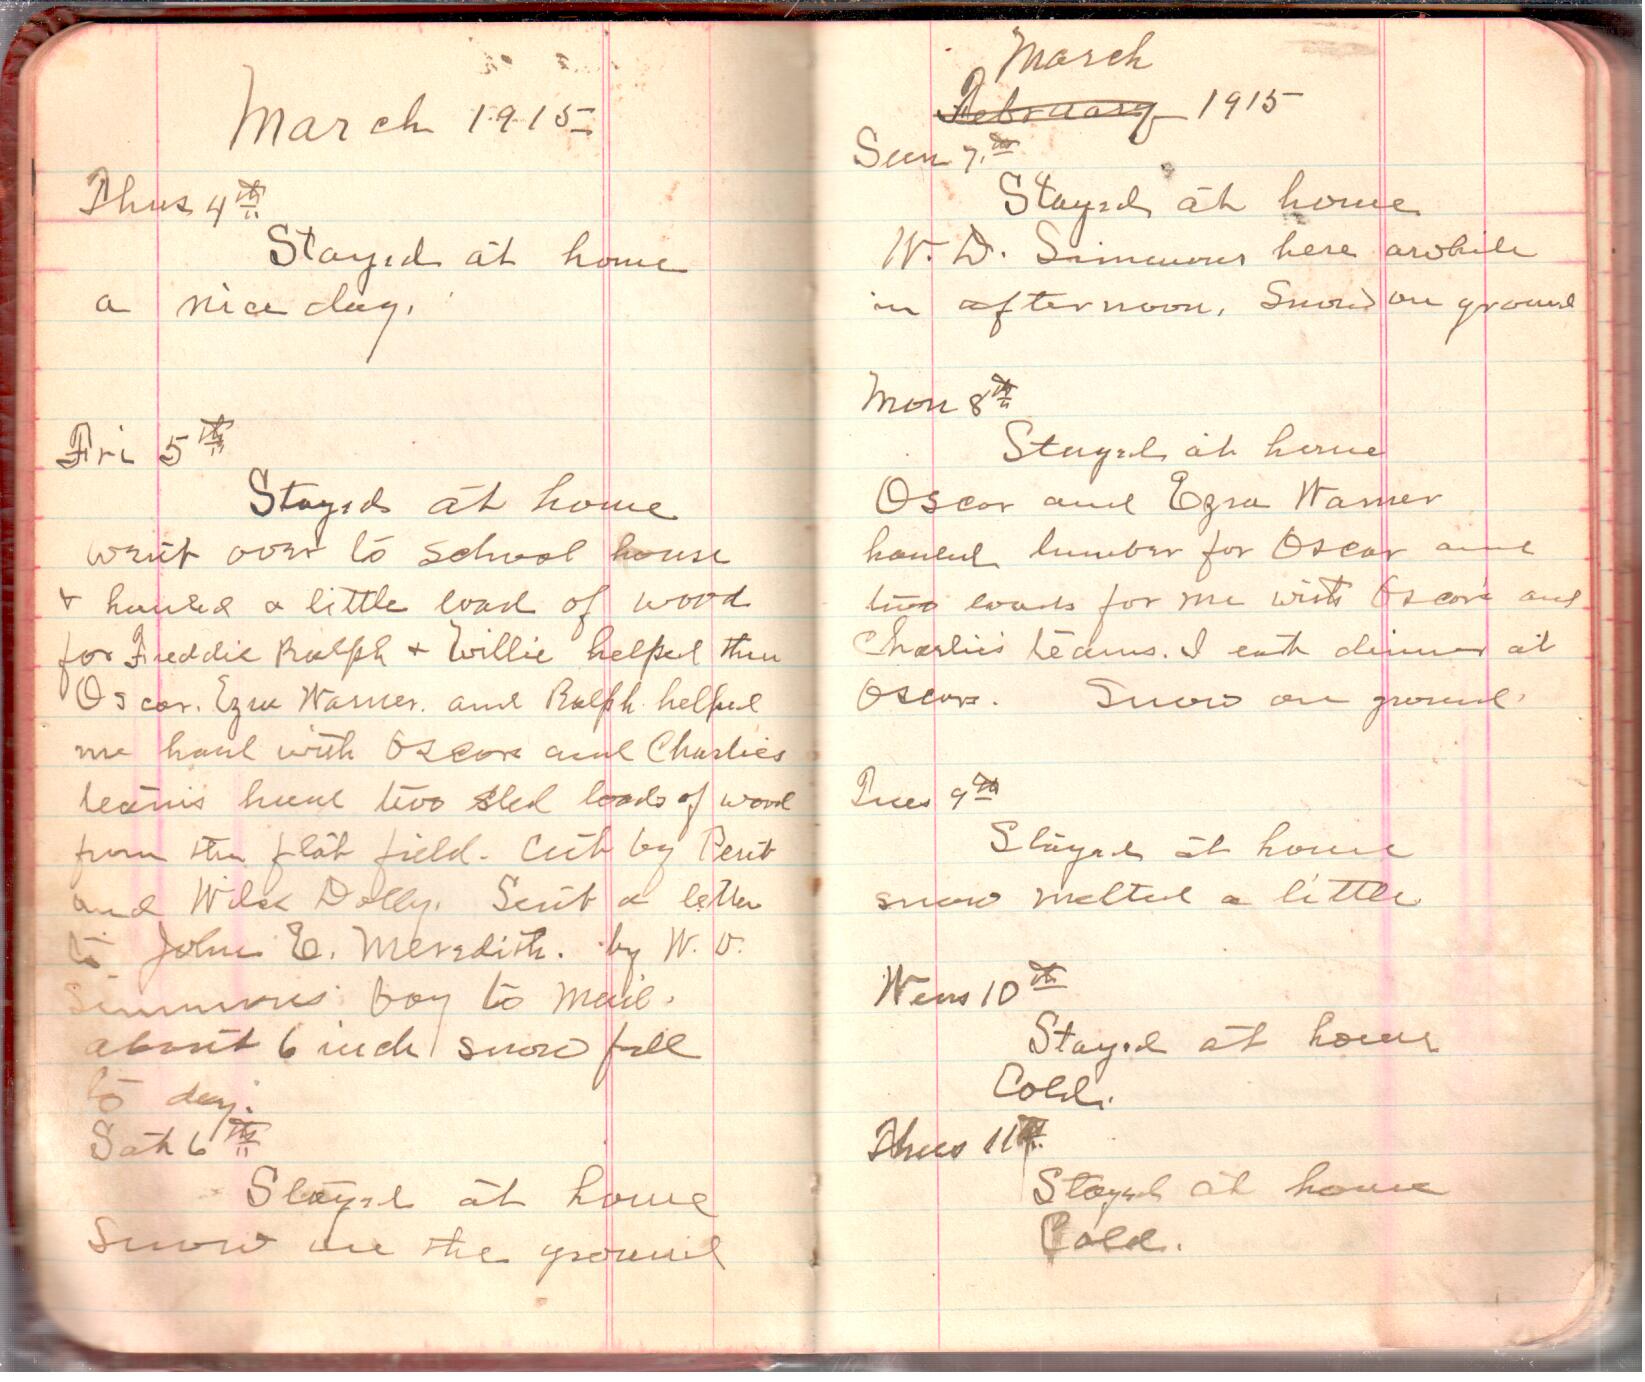 March 1915
Thus 4th
Stayed at home
a nice day.
Fri 5th
Stayed at home
went over to school house
+ hauled a little load of wood
for Freddie Ralph + Willie helped then
Oscar. Ezra Warner. and Ralph helped
me haul with Oscars and Charlies
teams two sled loads of wood
from the flat field. Cut by
and Dolly. Sent a letter
to John E. Meredith. by W. D.
Simmons boy to mail.
about 6 inch snow fell
to day.
Sat 6th
Stayed at home
Snow on the ground
March
February 1915
Sun 7.th
Stayed at home
W. D. Simmons here awhile
in afternoon. Snow on ground
Mon 8th
Stayed at home
Oscar and Ezra Warner
hauled lumber for Oscar and
two loads for me with Oscars and
Charlies teams. I eat dinner at
Oscars. Snow on ground.
Tues 9th
Stayed at home
snow melted a little
Wens 10th
Stayed at home
Cold.
Thus 11th
Stayed at home
Cold.